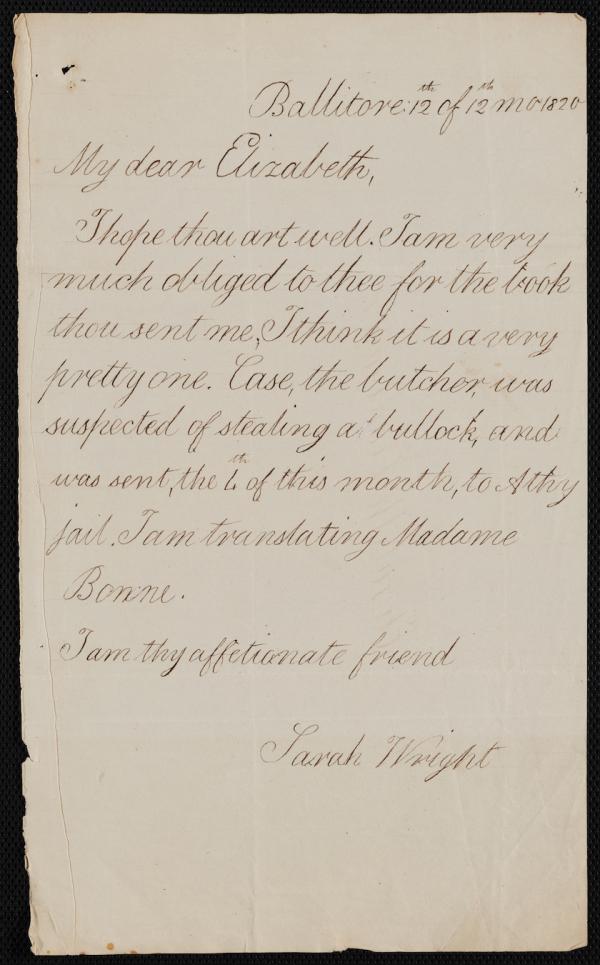 Ballitore 12th of 12th mo 1820
My dear Elizabeth,
I hope thou art well. I am very
much obliged to thee for the book
thou sent me, I think it is a very
pretty one. Case, the butcher, was
suspected of stealing a bullock, and
was sent, the 4th of this month, to Athy
jail. I am translating Madame
Bonne.
I am thy affetionate friend
Sarah Wright